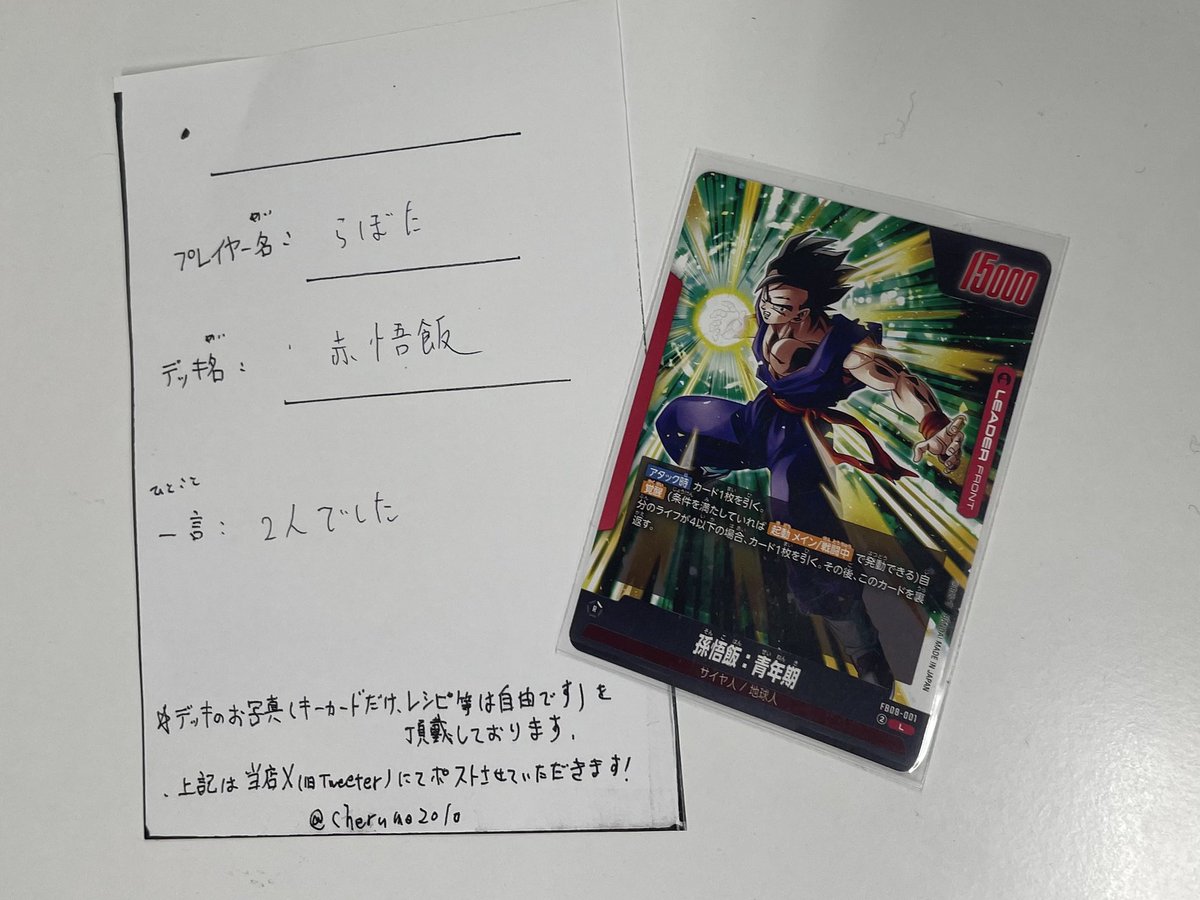 プレイヤー名: らぼた
めい
デッキ名: 赤悟飯
めい
ひとこと
一言: 2人でした
※デッキのお写真(キーカードだけ、レシピ等は自由です)を
頂戴しております。
上記は当店X(旧Tweeter)にてポストさせていただきます!
@cheruno2010
15000
LEADER FRONT
アタック時 カード1枚を引く。
覚醒 (条件を満たしていれば 起動メイン/戦闘中 で発動できる)自
分のライフが4以下の場合、カード1枚を引く。その後、このカードを裏
返す。
そん ご はん せい ねん き
孫悟飯:青年期
サイヤ人/地球人
FB08-001
L
MADE IN JAPAN